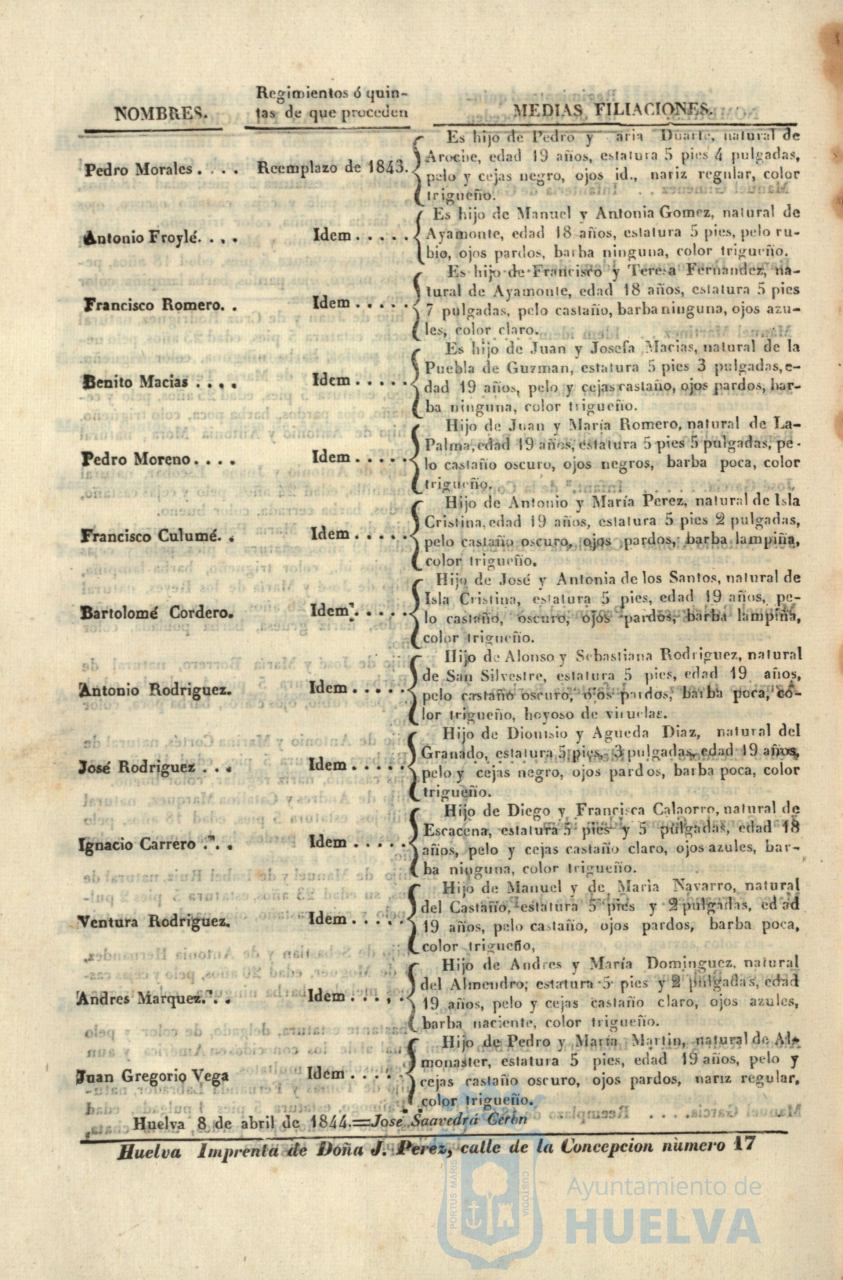 NOMBRES.
Regimientos ó quin-
tas de que proceden
MEDIAS FILIACIONES.
Pedro Morales . . . .
Reemplazo de 1843.
Es hijo de Pedro y aria Duarte, natural de
Aroche, edad 19 años, estatura 5 pies 4 pulgadas,
pelo y cejas negro, ojos id., nariz regular, color
trigueño.
Antonio Froylé. . . .
Idem . . . . .
Es hijo de Manuel y Antonia Gomez, natural de
Ayamonte, edad 18 años, estatura 5 pies, pelo ru-
bio, ojos pardos, barba ninguna, color trigueño.
Francisco Romero. .
Idem . . . . .
Es hijo de Francisco y Teresa Fernandez, na-
tural de Ayamonte, edad 18 años, estatura 5 pies
7 pulgadas, pelo castaño, barba ninguna, ojos azu-
les, color claro.
Benito Macias . . . .
Idem . . . . .
Es hijo de Juan y Josefa Macias, natural de la
Puebla de Guzman, estatura 5 pies 3 pulgadas, e-
dad 19 años, pelo y cejas castaño, ojos pardos, bar-
ba ninguna, color trigueño.
Pedro Moreno. . . .
Idem . . . . .
Hijo de Juan y María Romero, natural de La-
Palma, edad 19 años, estatura 5 pies 5 pulgadas, pe-
lo castaño oscuro, ojos negros, barba poca, color
trigueño.
Francisco Culumé. .
Idem . . . . .
Hijo de Antonio y María Perez, natural de Isla
Cristina, edad 19 años, estatura 5 pies 2 pulgadas,
pelo castaño oscuro, ojos pardos, barba lampiña,
color trigueño.
Bartolomé Cordero.
Idem . . . . .
Hijo de José y Antonia de los Santos, natural de
Isla Cristina, estatura 5 pies, edad 19 años, pe-
lo castaño, oscuro, ojos pardos, barba lampiña,
color trigueño.
Antonio Rodriguez.
Idem . . . . .
Hijo de Alonso y Sebastiana Rodriguez, natural
de San Silvestre, estatura 5 pies, edad 19 años,
pelo castaño oscuro, ojos pardos, barba poca, co-
lor trigueño, hoyoso de viruelas.
José Rodriguez . . .
Idem . . . . .
Hijo de Dionisio y Agueda Diaz, natural del
Granado, estatura 5 pies, 3 pulgadas, edad 19 años,
pelo y cejas negro, ojos pardos, barba poca, color
trigueño.
Ignacio Carrero . . .
Idem . . . . .
Hijo de Diego y Francisca Calaorro, natural de
Escacena, estatura 5 pies y 5 pulgadas, edad 18
años, pelo y cejas castaño claro, ojos azules, bar-
ba ninguna, color trigueño.
Ventura Rodriguez.
Idem . . . . .
Hijo de Manuel y de María Navarro, natural
del Castaño, estatura 5 pies y 2 pulgadas, edad
19 años, pelo castaño, ojos pardos, barba poca,
color trigueño,
Andres Marquez. . .
Idem . . . . .
Hijo de Andres y María Dominguez, natural
del Almendro; estatura 5 pies y 2 pulgadas, edad
19 años, pelo y cejas castaño claro, ojos azules,
barba naciente, color trigueño.
Juan Gregorio Vega
Idem . . . . .
Hijo de Pedro y María Martin, natural de Al-
monaster, estatura 5 pies, edad 19 años, pelo y
cejas castaño oscuro, ojos pardos, nariz regular,
color trigueño.
Huelva 8 de abril de 1844.=José Saavedra Ceron
Huelva Imprenta de Doña J. Perez, calle de la Concepcion número 17
PORTUS MARIS
CUSTODIA
Ayuntamiento de
HUELVA